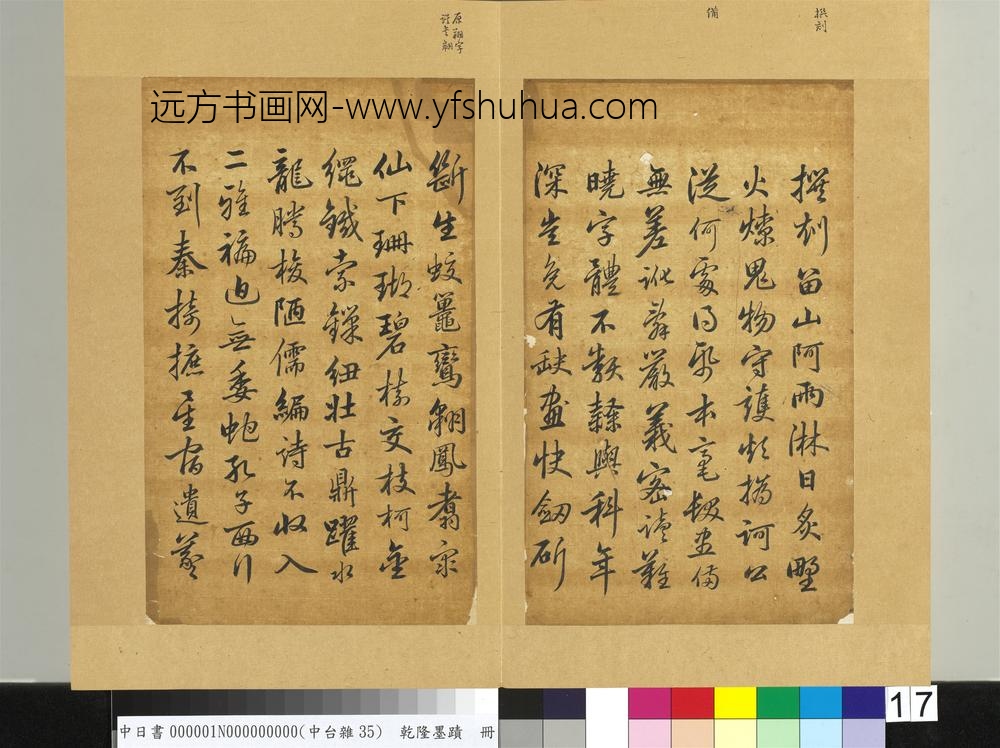 撰刻
備
原翔字
誤書翱
远方书画网-www.yfshuhua.com
撰刻留山阿雨淋日炙野
火燎鬼物守護煩撝訶公
從何處得紙本毫髮盡備
無差訛辭嚴義密讀難
曉字體不類隸與科年
深豈免有缺畫快劔斫
斷生蛟鼉鸞翱鳳翥眾
仙下珊瑚碧樹交枝柯金
繩鐵索鎖紐壯古鼎躍水
龍騰梭陋儒編詩不收入
二雅褊迫無委蛇孔子西行
不到秦掎摭星宿遺羲
中日書000001N000000000(中台雜35) 乾隆墨蹟 冊
17